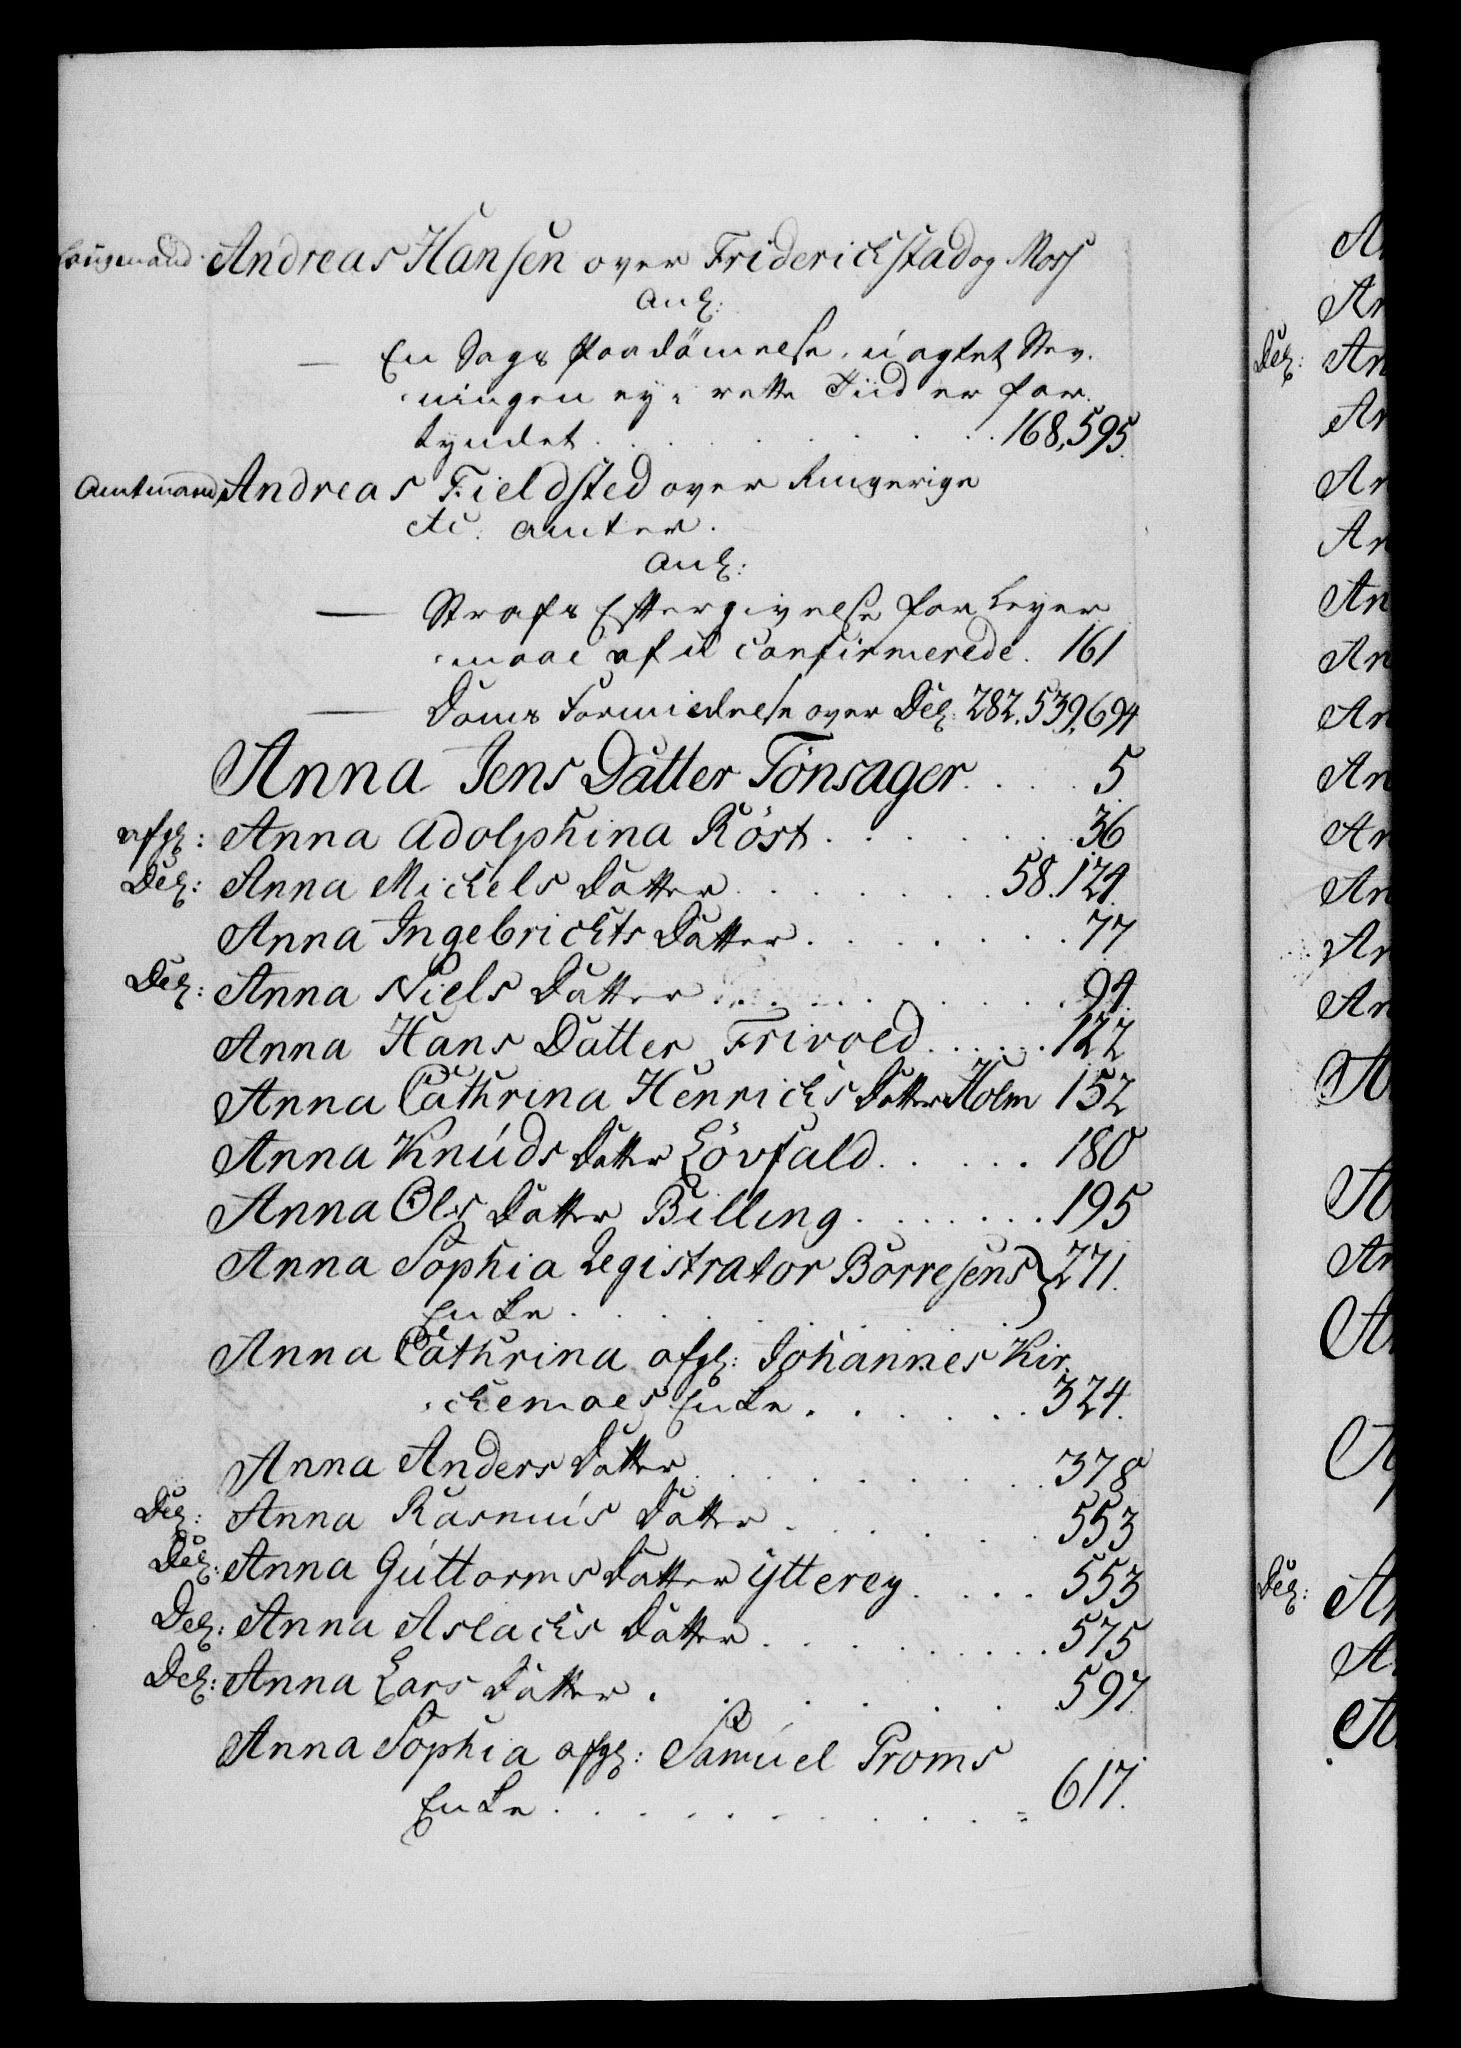 Laugmand Andreas Hansen over Friderichstad og Moss
anl:
— En Sags Paadömmelse, uagtet Stev-
ningen ey i rette Tiid er for-
kyndet . . . . . . . 168, 595.
Amtmand Andreas Fieldsted over Ringerige
etc: Amter.
anl:
— Strafs Eftergivelse for Leyer-
maal af u confirmerede. 161
— Doms Formildelse over Del: 282. 539, 694
Anna Jens Datter Tönsager . . . . 5
afgl: Anna Adolphina Röst . . . . . . 36
Del: Anna Michels Datter . . . . . . 58. 124.
Anna Ingebrichts Datter . . . . . . 77
Del: Anna Niels Datter . . . . . . . . 94
Anna Hans Datter Frivold . . . . . 122
Anna Cathrina Henrichs Datter Holm 152
Anna Knuds Datter Lövfald . . . . . 180
Anna Ols Datter Billing . . . . . . 195
Anna Sophia Registrator Borresens } 271.
Enke . . . . . . . . .
Anna Cathrina afgl: Johannes Kir-
chemoes Enke . . . . . . 324.
Anna Anders Datter . . . . . . . 378
Del: Anna Rasmus Datter . . . . . 553
Del: Anna Guttorms Datter Ytterey . . . . 553
Del: Anna Aslachs Datter . . . . . . . 575
Del: Anna Lars Datter . . . . . . . 597
Anna Sophia afgl: Samuel Proms
Enke . . . . . . . . . . 617.